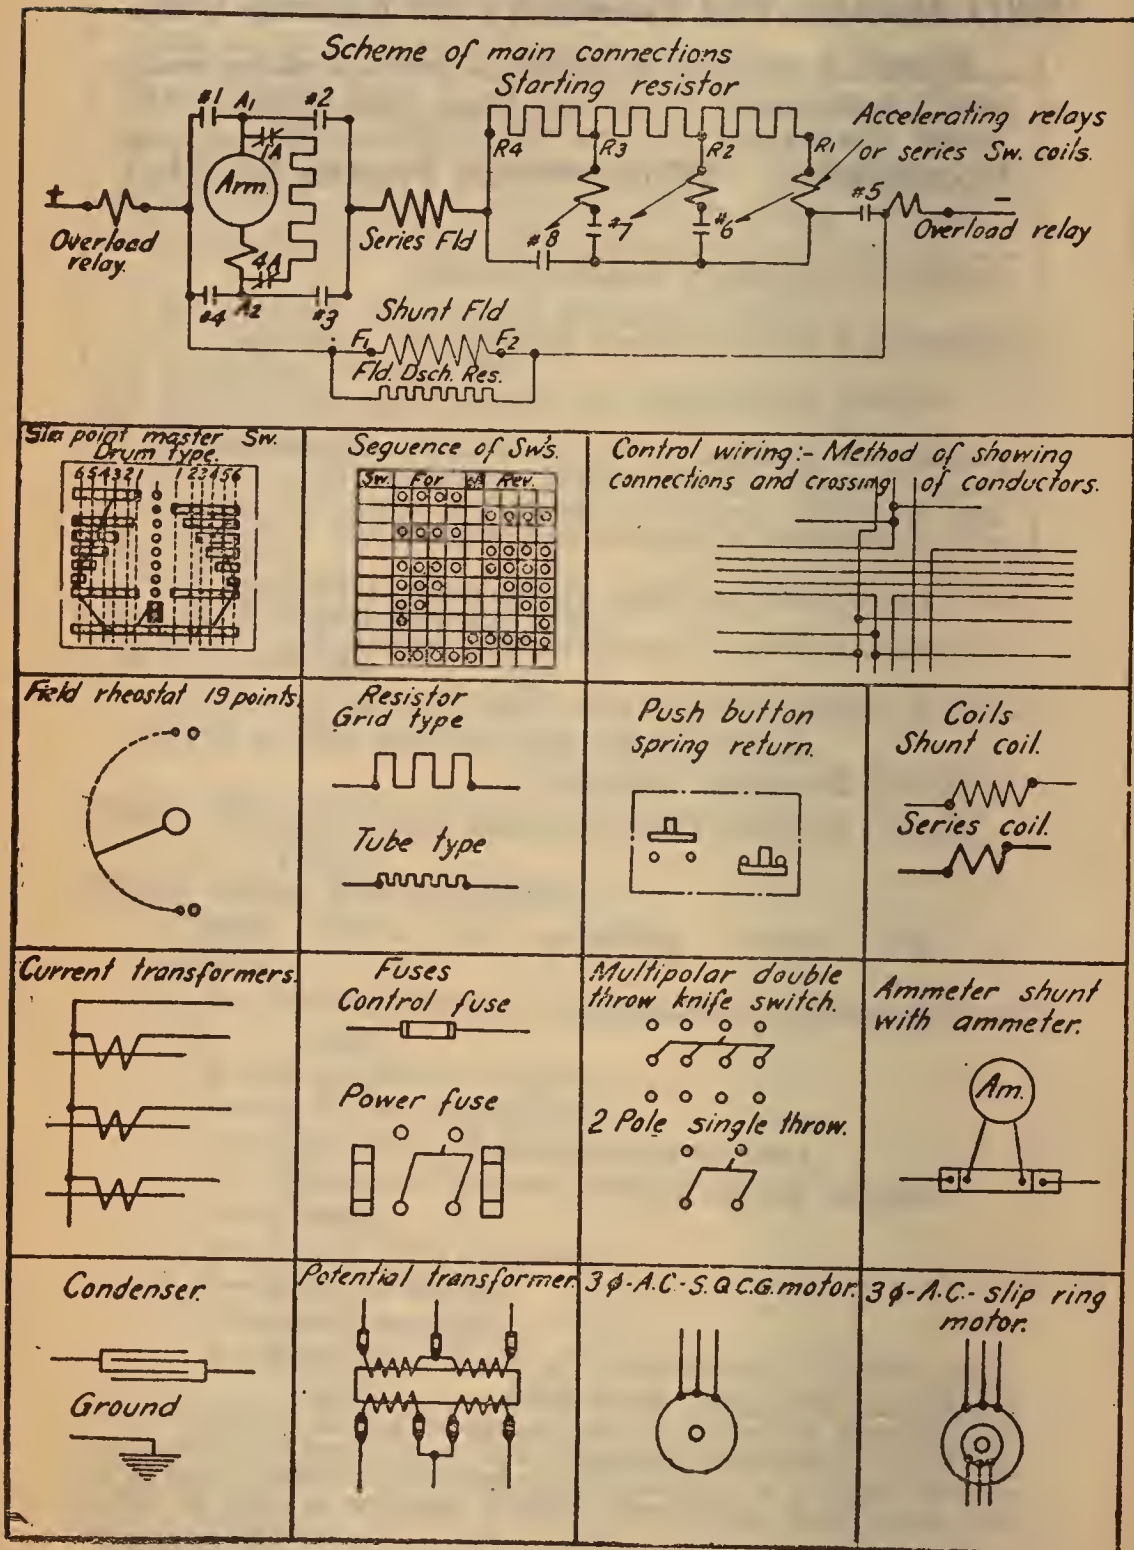 Scheme of main connections
Starting resistor
#1 A1 #2
1A
Arm.
+
Overload
relay.
4A
#4 A2 #3
Series Fld
R4 R3 R2 R1
Accelerating relays
or series Sw. coils.
#8 #7 #6 #5
-
Overload relay
Shunt Fld
F1 F2
Fld. Dsch. Res.
Six point master Sw.
Drum type.
6 5 4 3 2 1 1 2 3 4 5 6
Sequence of Sw's.
Sw. For Rev.
Control wiring:- Method of showing
connections and crossing of conductors.
Field rheostat 19 points.
Resistor
Grid type
Tube type
Push button
spring return.
Coils
Shunt coil.
Series coil.
Current transformers.
Fuses
Control fuse
Power fuse
Multipolar double
throw knife switch.
2 Pole single throw.
Ammeter shunt
with ammeter.
Am.
Condenser.
Ground
Potential transformer.
3 φ-A.C.-S.Q.C.G. motor.
3 φ-A.C.- slip ring
motor.